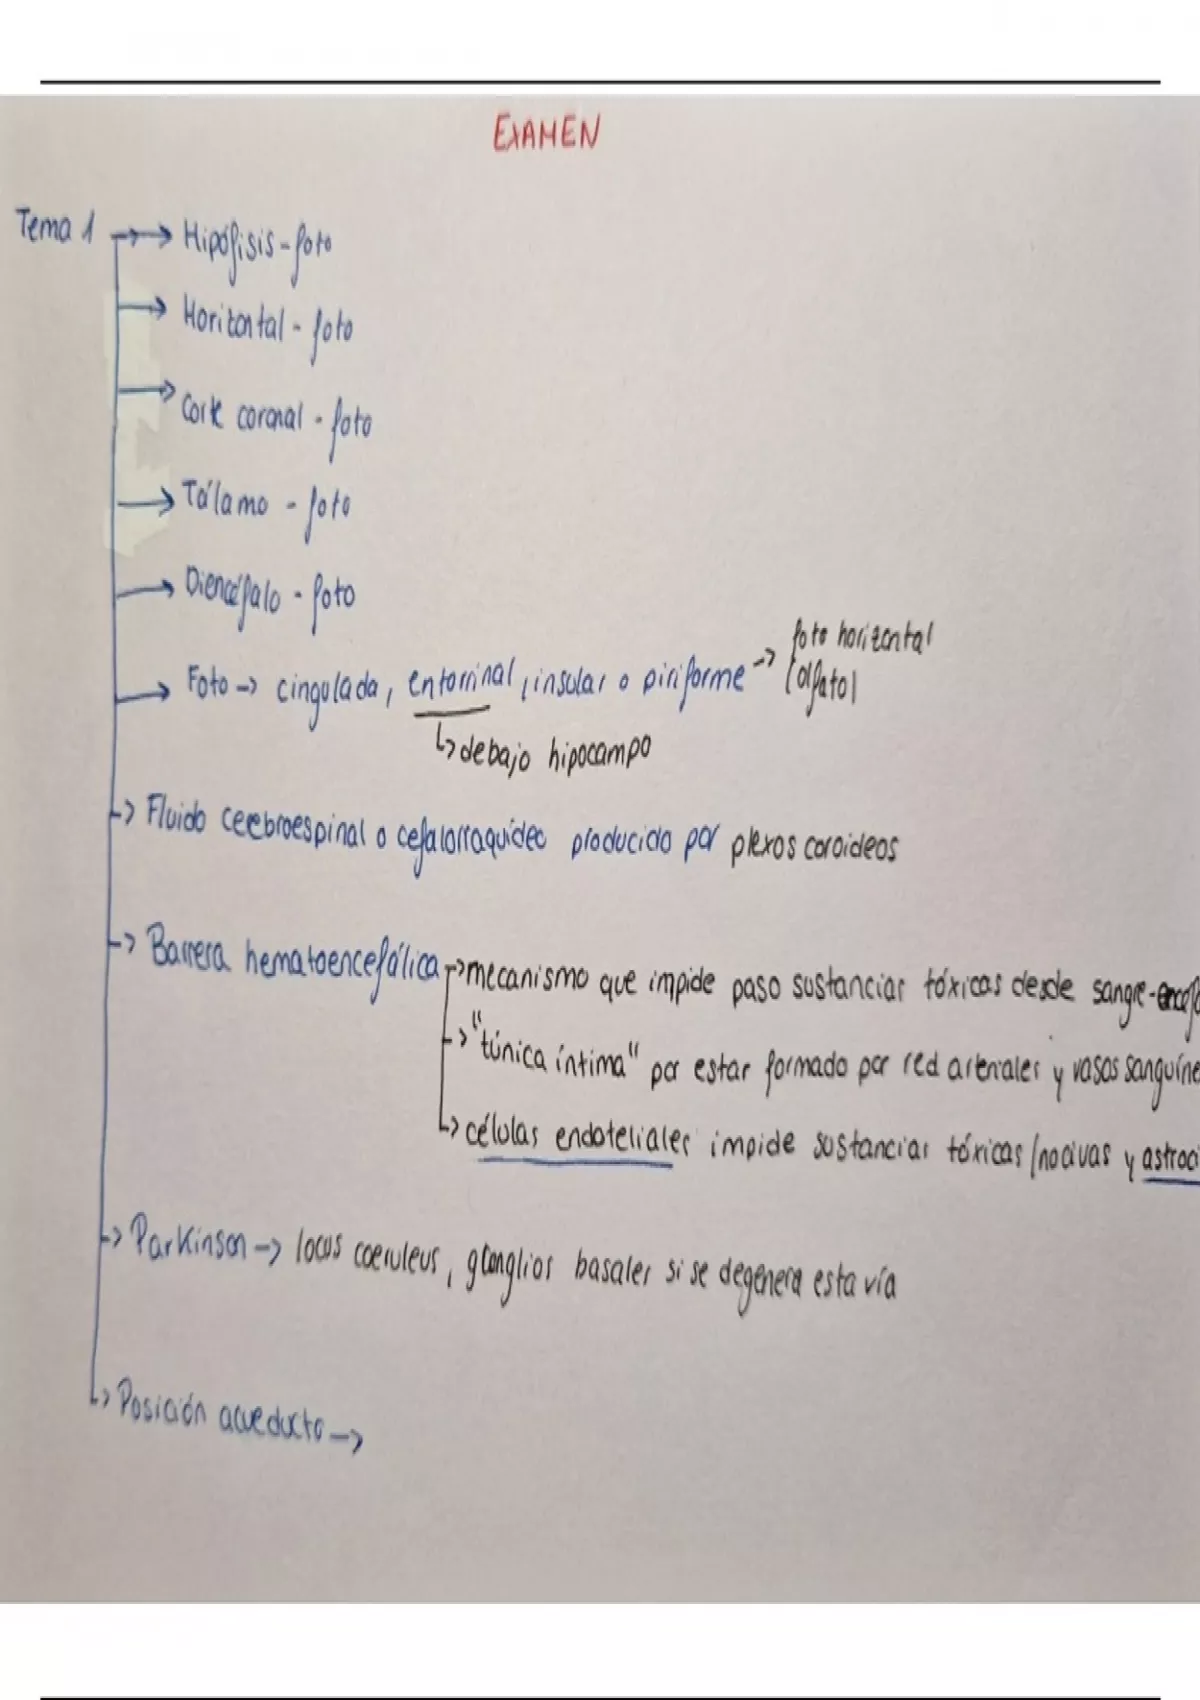 EXAMEN
Tema 1 →→ Hipófisis - foto
→ Horizontal - foto
→ Corte coronal - foto
→ Tálamo - foto
→ Diencéfalo - foto
→ Foto → cingulada, entorrinal, insular o piriforme → foto horizontal
(olfato)
↳ debajo hipocampo
→ Fluido cerebroespinal o cefalorraquídeo producido por plexos coroideos
→ Barrera hematoencefálica → mecanismo que impide paso sustancias tóxicas desde sangre-
→ "túnica íntima" por estar formado por red arteriales y vasos sanguíne
↳ células endoteliales impide sustancias tóxicas/nocivas y astroci
→ Parkinson → locus coeruleus, ganglios basales si se degenera esta vía
↳ Posición acueducto →